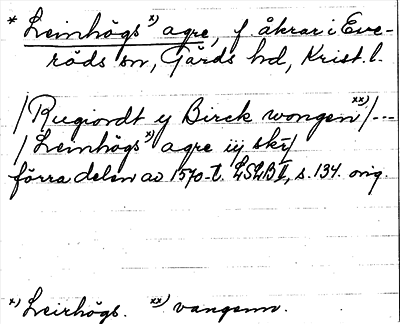 * Leinhögs x) agre, f. åkrar i Eve-
röds sn, Gärds hd, Krist. l.
/Rugiordt y Birck wongen xx)/---
/Leinhögs x) agre iij sky/
förra delen av 1570-t. LSLB II, s. 134. orig.
x) Leirhögs. xx) vangenn.